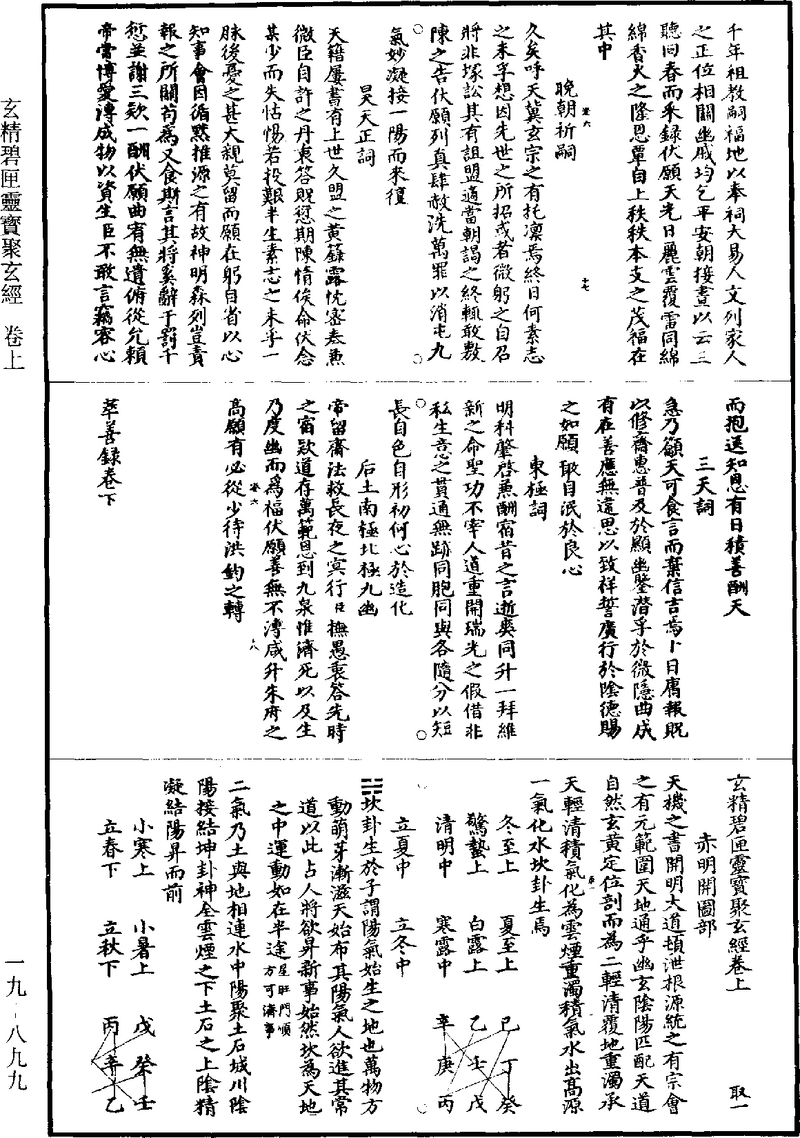 千年祖教嗣福地以奉祠大易人文列家人
之正位相關幽戚均乞平安朝接晝以云三
聽回春而釆錄伏願天光日麗雲覆雷同綿
綿香火之隆恩覃自上秩秩本支之茂福在
其中
晚朝祈嗣
久矣呼天冀玄宗之有托凜焉終日何素志
之未孚想因先世之所招或者微躬之自召
將非塚訟其有詛盟適當朝謁之終輒敢敷
陳之吿伏願列真肆赦洗萬罪以消屯九
氣妙凝接一陽而來復
昊天正詞
天籍屢書有上世久盟之黃籙露忱密奏無
微臣自許之丹衷答貺愆期陳情俟命伏念
某少而失怙惕若投艱半生素志之未孚一
脉後憂之甚大親莫留而願在躬自省以心
知事會因循黙推源之有故神明森列豈責
報之所關苟爲又食斯言其將奚辭于罰千
愆並謝三欵一酬伏願曲宥無遺俯從允賴
帝嘗博愛溥成物以資生臣不敢言竊容心
而抱送知恩有日積善酬天
三天詞
急乃籲天可食言而棄信吉爲卜日庸報貺
以修齋惠普及於顯幽鑒潛孚於微隱曲成
有在善應無違思以致祥誓廣行於陰德賜
之如願敢自泯於良心
東極詞
明科肇啓無酬宿昔之言逝爽同升一拜維
新之命聖功不宰人道重開瑞光之假借非
私生意之貫通無跡同胞同與各隨分以短
長自色自形初何心於造化
后土南極北極九幽
帝留齋法救長夜之冥行臣撫愚衷答先時
之宿欵道存萬範恩到九泉惟濟死以及生
乃度幽而爲福伏願善無不溥咸升朱府之
高願有必從少待洪鈞之轉
萃善錄卷下
玄精碧匣靈寶聚玄經卷上
取一
赤明開圖部
天機之書開明大道頓泄根源統之有宗會
之有元範圍天地通乎幽玄陰陽匹配天道
自然玄黃定位剖而為二輕清覆地重濁承
天輕清積氣化為雲煙重濁積氣水出高源
一氣化水坎卦生焉
冬至上 夏至上 己 丁 癸
驚蟄上 白露上 乙 壬 戊
清明中 寒露中 辛 庚 丙
立夏中 立冬中
☵坎卦生於子謂陽氣始生之地也萬物方
動萌芽漸滋天始布其陽氣人欲進其常
道以此占人將欲昇新事始然坎為天地
之中運動如在半途星旺門順方可濟事
二氣乃土與地相連水中陽聚土石城川陰
陽接結坤卦神全雲煙之下土石之上陰精
凝結陽昇而前
小寒上 小暑上 戊 癸 壬
立春下 立秋下 丙 辛 乙
玄精碧匣靈寶聚玄經 卷上
一九-八九九